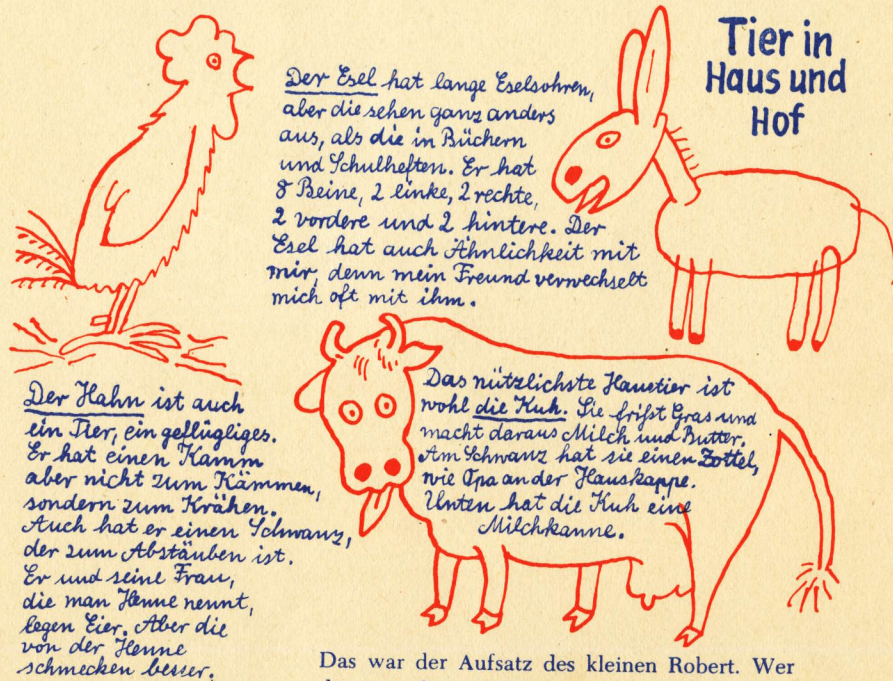 Tier in
Haus und
Hof
Der Esel hat lange Eselsohren,
aber die sehen ganz anders
aus, als die in Büchern
und Schulheften. Er hat
8 Beine, 2 linke, 2 rechte,
2 vordere und 2 hintere. Der
Esel hat auch Ähnlichkeit mit
mir, denn mein Freund verwechselt
mich oft mit ihm.
Der Hahn ist auch
ein Tier, ein geflügliges.
Er hat einen Kamm
aber nicht zum Kämmen,
sondern zum Krähen.
Auch hat er einen Schwanz,
der zum Abstäuben ist.
Er und seine Frau,
die man Henne nennt,
legen Eier. Aber die
von der Henne
schmecken besser.
Das nützlichste Haustier ist
wohl die Kuh. Sie frißt Gras und
macht daraus Milch und Butter.
Am Schwanz hat sie einen Zottel,
wie Opa an der Hauskappe.
Unten hat die Kuh eine
Milchkanne.
Das war der Aufsatz des kleinen Robert. Wer